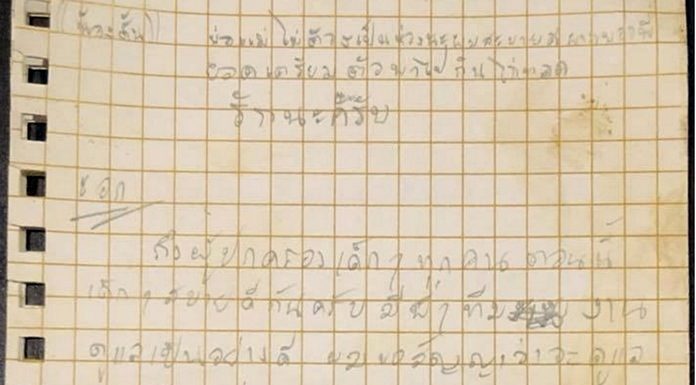 (น้องตั้น) พ่อแม่ ไม่ต้องเป็นห่วงนะผมสบายดี
ช่วยเตรียมตัวพาไปกินไก่ทอด
รักนะครับ
โค้ชเอก
ถึงผู้ปกครองเด็กๆทุกคน ตอนนี้
เด็กๆสบายดีกันครับ มีพี่ๆทีมงาน
ดูแลเป็นอย่างดี ผมขอสัญญาว่าจะดูแล